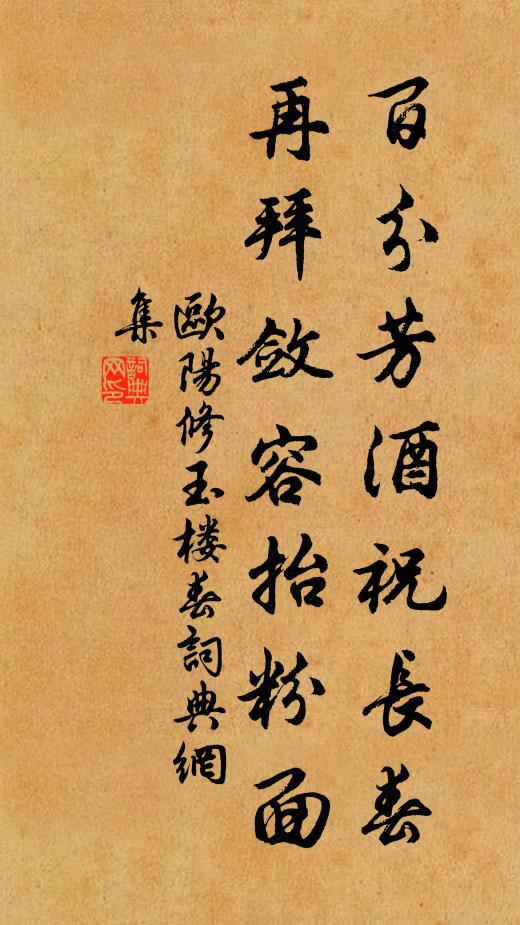 百分芳酒祝長春
再拜斂容抬粉面
歐陽修玉楼春詞典網
集
詞典
网印